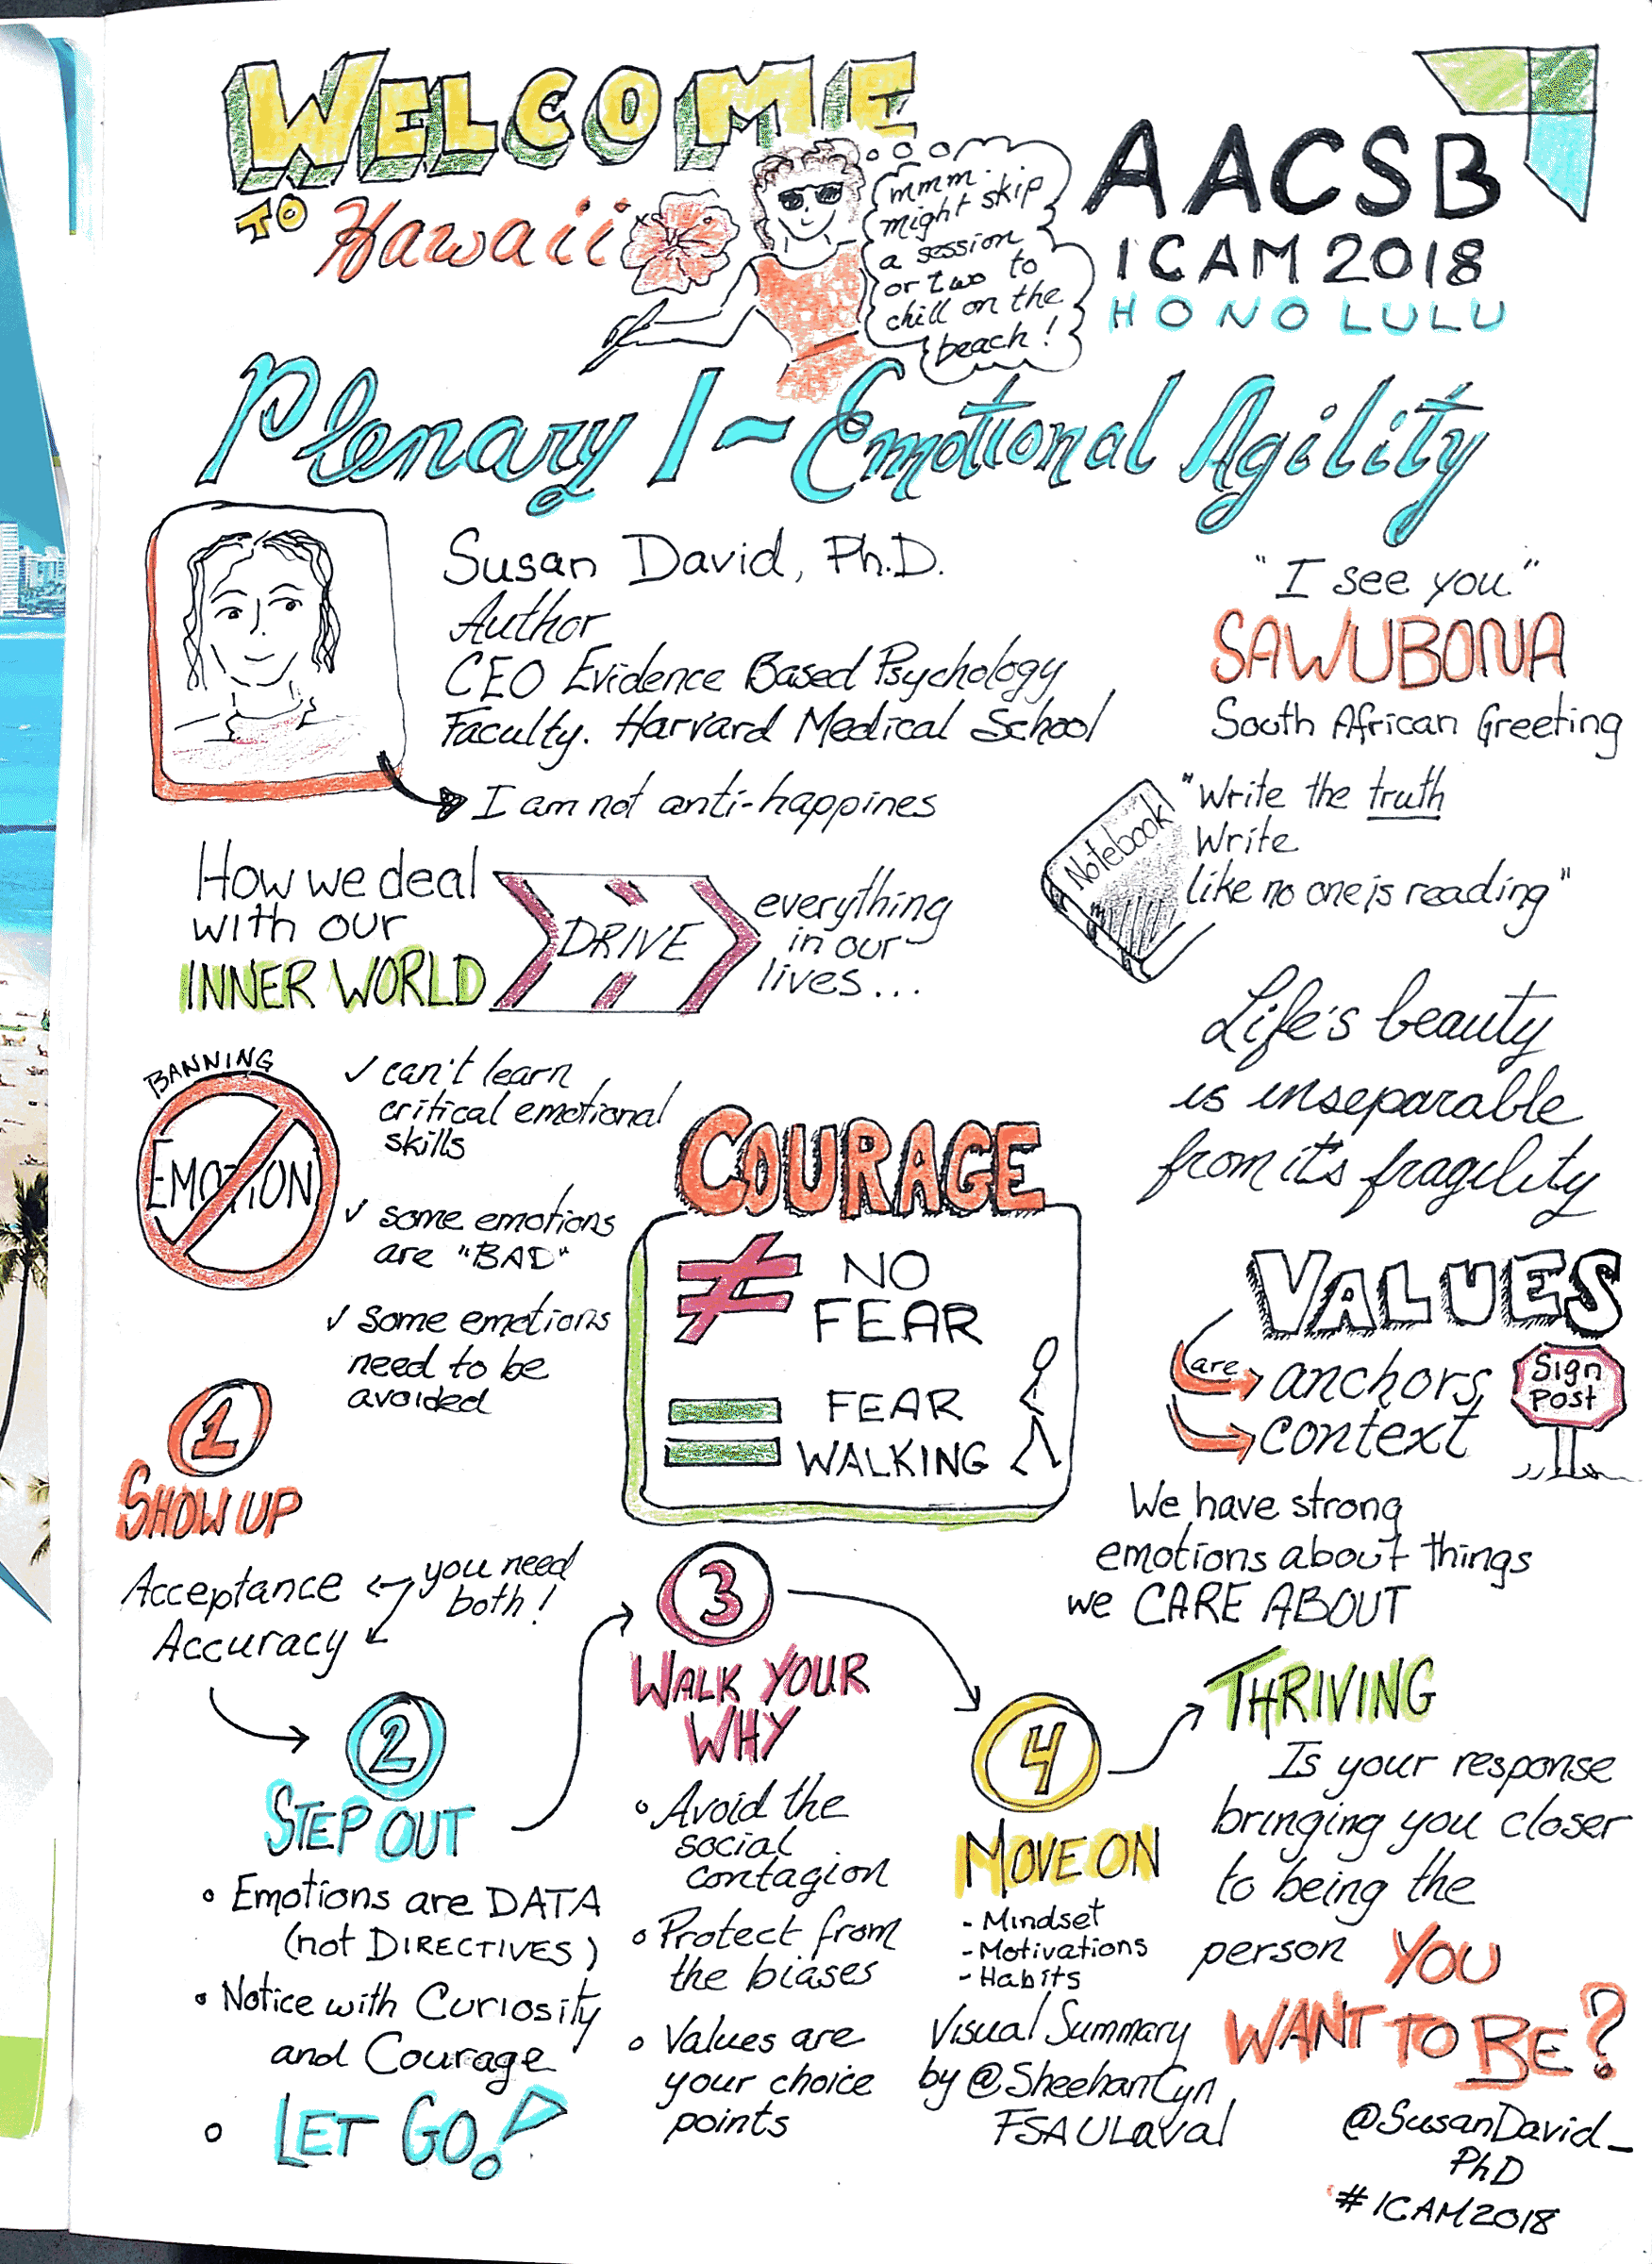 WELCOME
TO Hawaii
mmm.
might skip
a session
or two to
chill on the
beach!
AACSB
ICAM 2018
HONOLULU
Plenary 1 ~ Emotional Agility
Susan David, Ph.D.
Author
CEO Evidence Based Psychology
Faculty. Harvard Medical School
I am not anti-happines
"I see you"
SAWUBONA
South African Greeting
Notebook
"Write the truth
Write
like no one is reading"
How we deal
with our
INNER WORLD
DRIVE
everything
in our
lives...
Life's beauty
is inseparable
from it's fragility
BANNING
EMOTION
✓ can't learn
critical emotional
skills
✓ some emotions
are "BAD"
✓ some emotions
need to be
avoided
COURAGE
≠ NO
FEAR
= FEAR
WALKING
VALUES
are anchors
context
Sign
Post
We have strong
emotions about things
we CARE ABOUT
1
SHOW UP
Acceptance
Accuracy
you need
both!
2
STEP OUT
• Emotions are DATA
(not DIRECTIVES)
• Notice with Curiosity
and Courage
• LET GO!
3
WALK YOUR
WHY
• Avoid the
social
contagion
• Protect from
the biases
• Values are
your choice
points
4
MOVE ON
- Mindset
- Motivations
- Habits
THRIVING
Is your response
bringing you closer
to being the
person YOU
WANT TO BE?
Visual Summary
by @SheehanCyn
FSA ULaval
@SusanDavid_
PhD
#ICAM2018